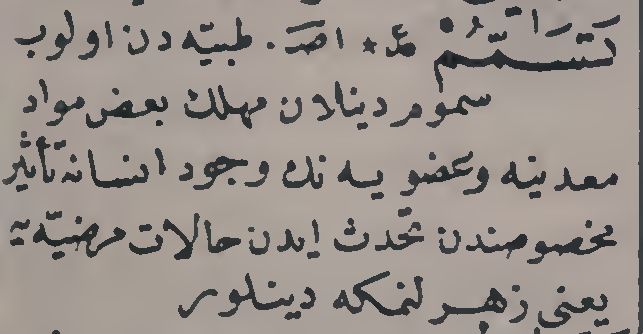 تَسَمُّمْ ع ٭ اصـ . طبیّه دن اولوب
سموم دینلان مهلك بعض مواد
معدنیه وعضویه نك وجود انسانه تأثیر
مخصوصندن تحدث ایدن حالات مرضیّه یه
یعنی زهرلنمكه دینلور